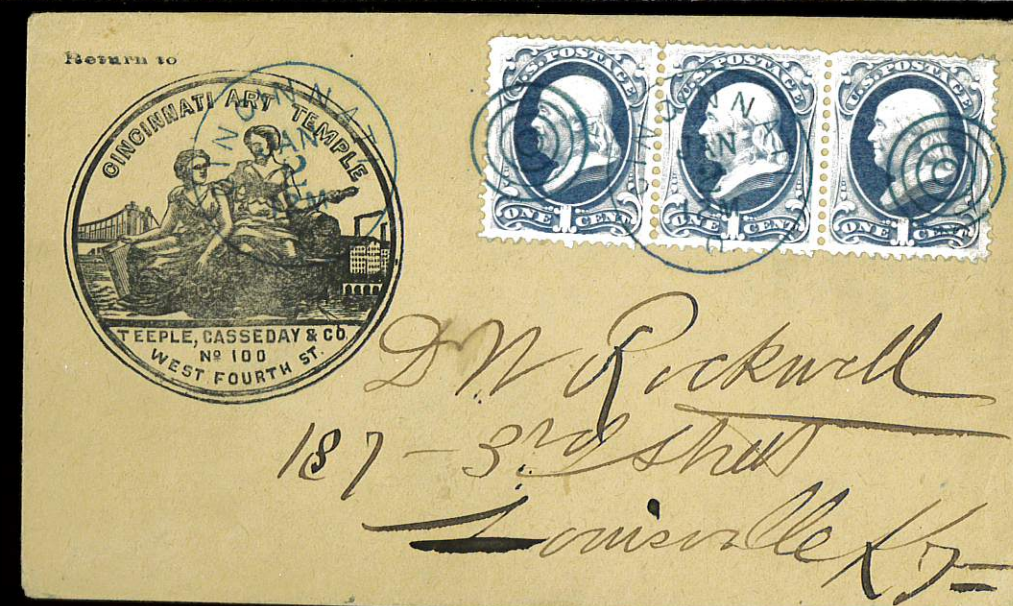 Return to
CINCINNATI ART TEMPLE
TEEPLE, CASSEDAY & CO.
Nº 100
WEST FOURTH ST.
CINCINNATI
JAN
2
PM
U.S. POSTAGE
ONE 1 CENT
U.S. POSTAGE
ONE 1 CENT
U.S. POSTAGE
ONE 1 CENT
CINCINNATI
JAN
2
PM
D W Rockwell
187 - 3rd street
Louisville Ky